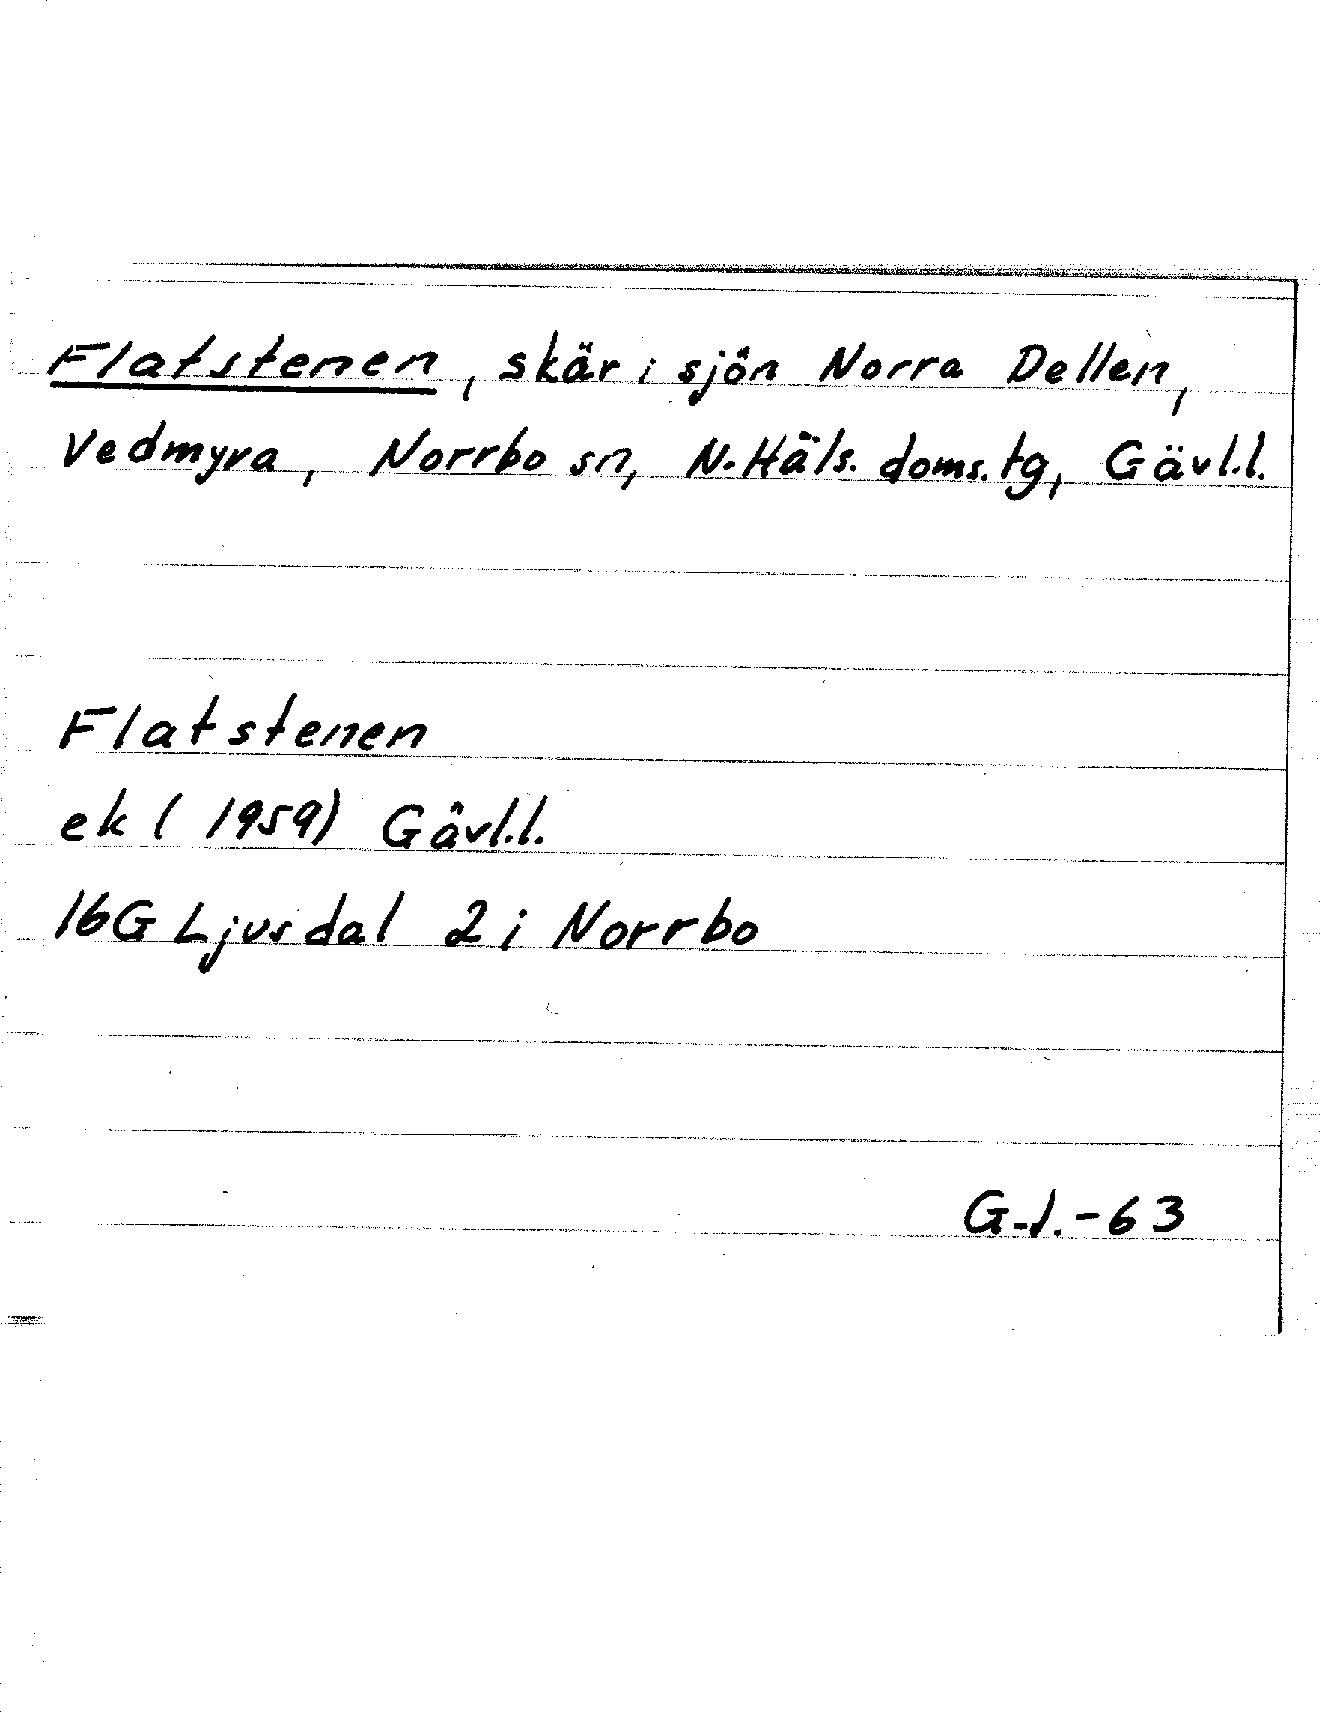 Flatstenen, skär i sjön Norra Dellen,
Vedmyra, Norrbo sn, N. Häls. doms.tg, Gävl.l.
Flatstenen
ek (1959) Gävl.l.
16G Ljusdal 2 i Norrbo
G-J.-63